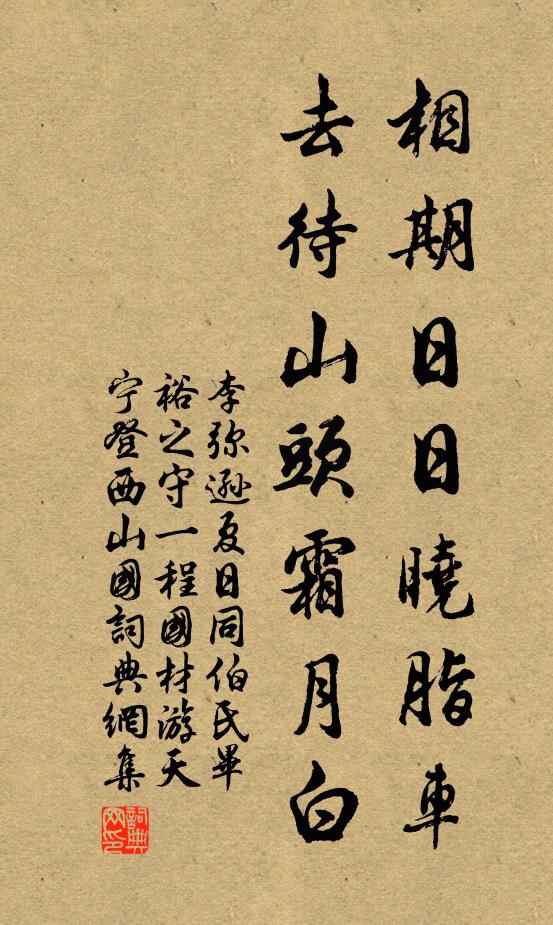 相期日日曉脂車
去待山頭霜月白
李弥遜夏日同伯氏畢
裕之守一程國材游天
宁登西山國詞典網集
詞典
网印